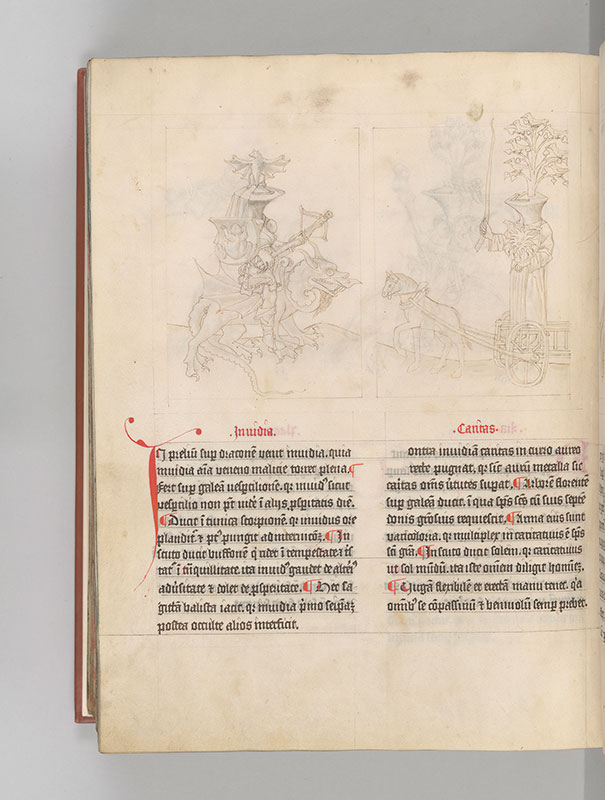 ·Inuidia·
d p̄lium sup̄ draconē venit inuidia. quia
inuidia aīa veneno malicie torret plena ¶
fert sup̄ galeā vespilionē. qr inuidꝰ sicut
vespilio non pōt videre ī alijs ꝓspitatis diē.
¶ Ducit ī tunica scorpionē. qr inuidus ore
plaudit et pungit ad interitū. ¶ In
scuto ducit buffonē q̄ ridet ī tempestate et
tat ī tn̄quillitate. ita inuidꝰ gaudet de altͥꝰ
aduͥsitate et dolet de ꝓspitate. ¶ Hec sa
gittā balista iacit. qr inuidia p̄mo seip̄az
postea occulte alios interficit.
·Caritas·
ontra inuidiā caritas in curro aureo
recte pugnat. qr sic aurū metalla sic
caritas om̄s vͥtutes supat. ¶ Arborē florentē
sup̄ galeam ducit. ī qua sp̄s sc̄s cū suis septē
donis gͣtiosius requiescit. ¶ Arma eiꝰ sunt
varicoloria. qr multiplex in caritatiuis ē sp̄s
sc̄i grā. ¶ In scuto ducit solem. qr caritatiuus
ut sol mūdū. ita iste om̄em diligit hominē.
¶ Virgā flexibilē et erectā manu tenet. qͥa
om̄ibꝰ se cōpassiuū et beniuolū semp̄ prebet.